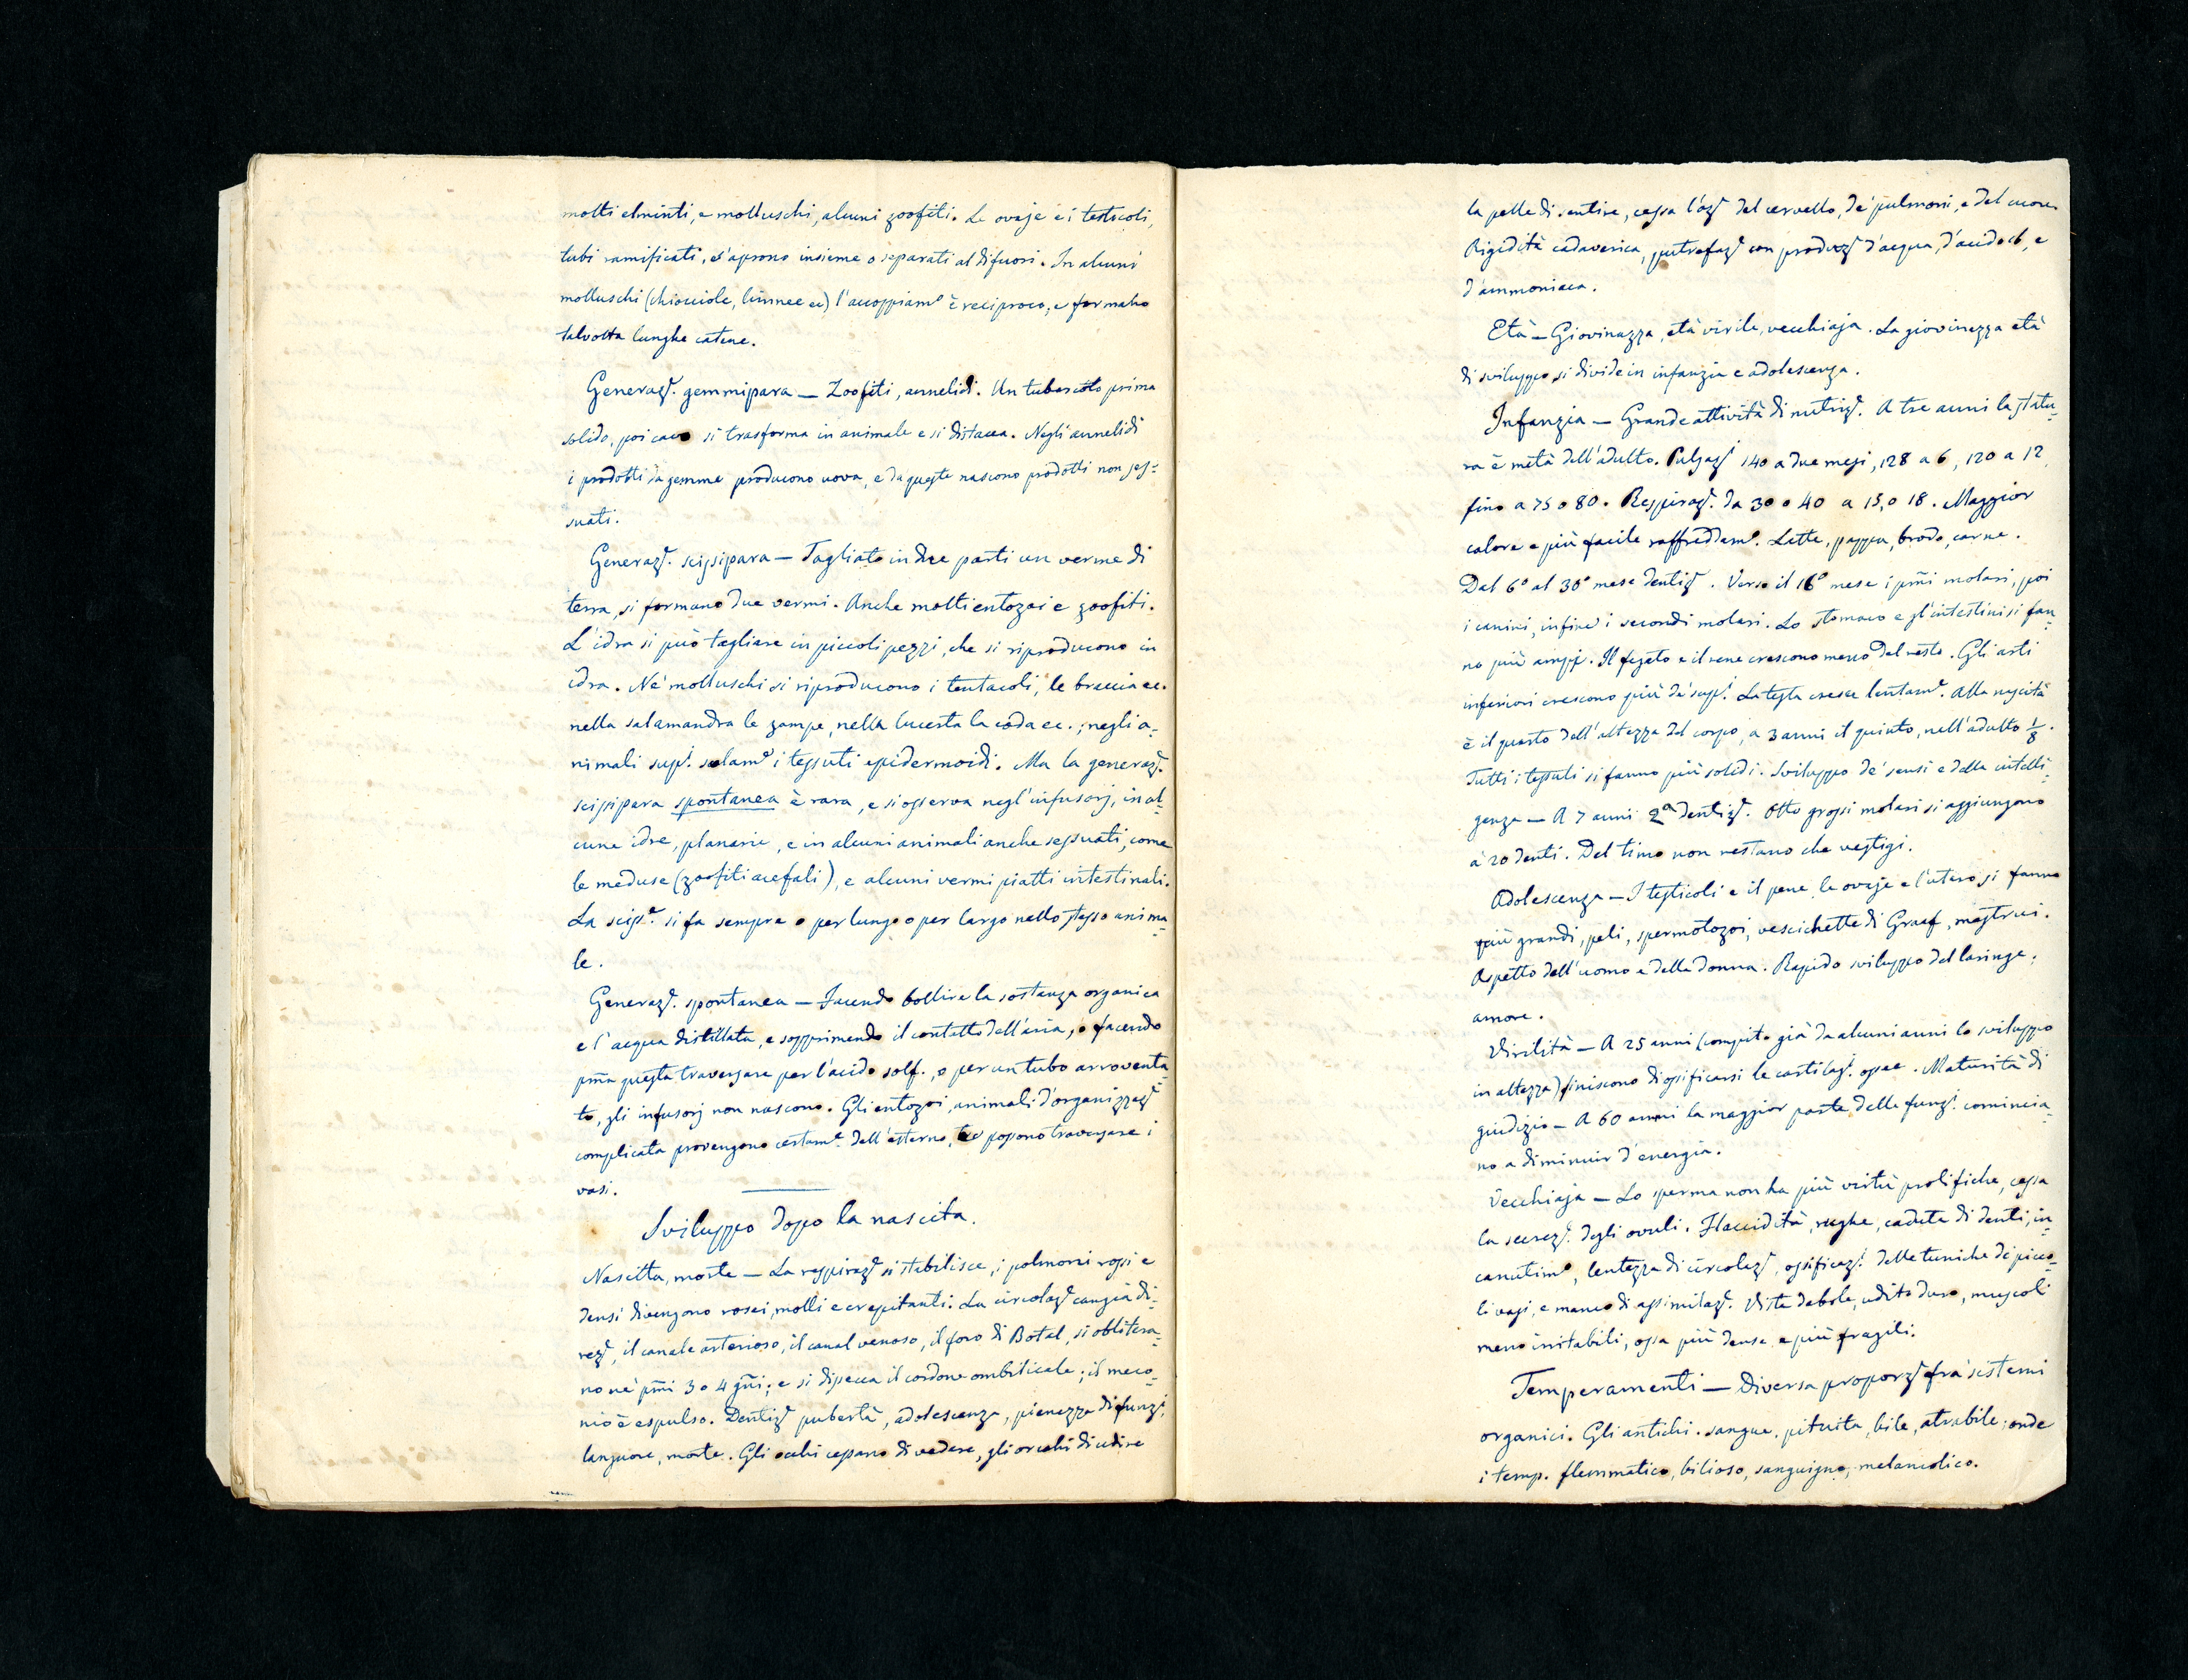 molti elminti, e molluschi, alcuni zoofiti. Le ovaje e i testicoli,
tubi ramificati, s'aprono insieme o separati al difuori. In alcuni
molluschi (chiocciole, limnee ec) l'accoppiam.º è reciproco, e formano
talvolta lunghe catene.
Generazᵉ. gemmipara — Zoofiti, annelidi. Un tubercolo prima
solido, poi cavo si trasforma in animale e si distacca. Negli annelidi
i prodotti da gemme producono uova, e da queste nascono prodotti non ses-
suati.
Generazᵉ. scissipara — Tagliato in due parti un verme di
terra, si formano due vermi. Anche molti entozoi e zoofiti.
L'idra si può tagliare in piccoli pezzi, che si riproducono in
idra. Ne' molluschi si riproducono i tentacoli, le braccia ec.
nella salamandra le zampe, nella lucerta la coda ec.; negli a-
nimali supⁱ. solamᵉ i tessuti epidermoidi. Ma la generazᵉ.
scissipara spontanea è rara, e si osserva negl'infusorj, in al-
cune idre, planarie, e in alcuni animali anche sessuati, come
le meduse (zoofiti acefali), e alcuni vermi piatti intestinali.
La scissᵉ. si fa sempre o per lungo o per largo nello stesso anima-
le.
Generazᵉ. spontanea — Facendo bollire la sostanza organica
e l'acqua distillata, e sopprimendo il contatto dell'aria, o facendo
pm̃a questa traversare per l'acido solf., o per un tubo arroventa-
to, gli infusorj non nascono. Gli entozoi, animali d'organizzazᵉ
complicata provengono certamᵉ. dell'esterno, possono traversare i
vasi.
Sviluppo dopo la nascita.
Nascita, morte — La respirazᵉ si stabilisce, i polmoni rossi e
densi divengono rosei, molli e crepitanti. La circolazᵉ cangia di-
rezᵉ, il canale arterioso, il canal venoso, il foro di Botal, si oblitera-
no ne' pm̃i 3 o 4 gñi; e si dissecca il cordone ombilicale; il meco-
nio è espulso. Dentizᵉ pubertà, adolescenza, pienezza di funzⁱ,
languore, morte. Gli occhi cessano di vedere, gli orecchi di udire
la pelle di sentire, cessa l'azᵉ del cervello, de' pulmoni, e del cuore
Rigidità cadaverica, putrefazᵉ con produzᵉ d'acqua, d'acido cb, e
d'ammoniaca.
Età — Giovinezza, età virile, vecchiaja. La giovinezza età
di sviluppo si divide in infanzia e adolescenza.
Infanzia — Grande attività di nutrizᵉ. A tre anni la statu-
ra è metà dell'adulto. Pulsazⁱ 140 a due mesi, 128 a 6, 120 a 12,
fino a 75 o 80. Respirazᵉ. da 30 o 40 a 15, o 18. Maggior
calore e più facile raffreddamº. Latte, pappa, brodo, carne.
Dal 6º al 30º mese dentizᵉ. Verso il 16º mese i pm̃i molari, poi
i canini, infine i secondi molari. Lo stomaco e gl'intestini si fan-
no più ampj. Il fegato e il rene crescono meno del resto. Gli arti
inferiori crescono più de' supⁱ. La testa cresce lentamᵉ. Alla nascita
è il quarto dell'altezza del corpo, a 3 anni il quinto, nell'adulto 1/8.
Tutti i tessuti si fanno più solidi. Sviluppo de' sensi e della intelli-
genza — A 7 anni 2ª dentizᵉ. Otto grossi molari si aggiungono
a' 20 denti. Del timo non restano che vestigi.
Adolescenza — I testicoli e il pene, le ovaje e l'utero si fanno
più grandi, peli, spermotozoi, vescichette di Graaf, mestrui.
Aspetto dell'uomo e della donna. Rapido sviluppo del laringe,
amore.
Virilità — A 25 anni (compito già da alcuni anni lo sviluppo
in altezza) finiscono di ossificarsi le cartilagⁱ. ossee. Maturità di
giudizio — A 60 anni la maggior parte delle funzⁱ. comincia-
no a diminuir d'energia.
Vecchiaja — Lo sperma non ha più virtù prolifiche, cessa
la secrezᵉ. degli ovuli. Flaccidità, rughe, caduta di denti, in-
canutimº, lentezza di circolazᵉ, ossificazⁱ delle tuniche de' picco-
li vasi, e manco di assimilazᵉ. Vista debole, udito duro, muscoli
meno irritabili, ossa più dense e più fragili.
Temperamenti — Diversa proporzᵉ fra' sistemi
organici. Gli antichi. sangue, pituita, bile, atrabile; onde
i temp. flemmatico, bilioso, sanguigno, melancolico.